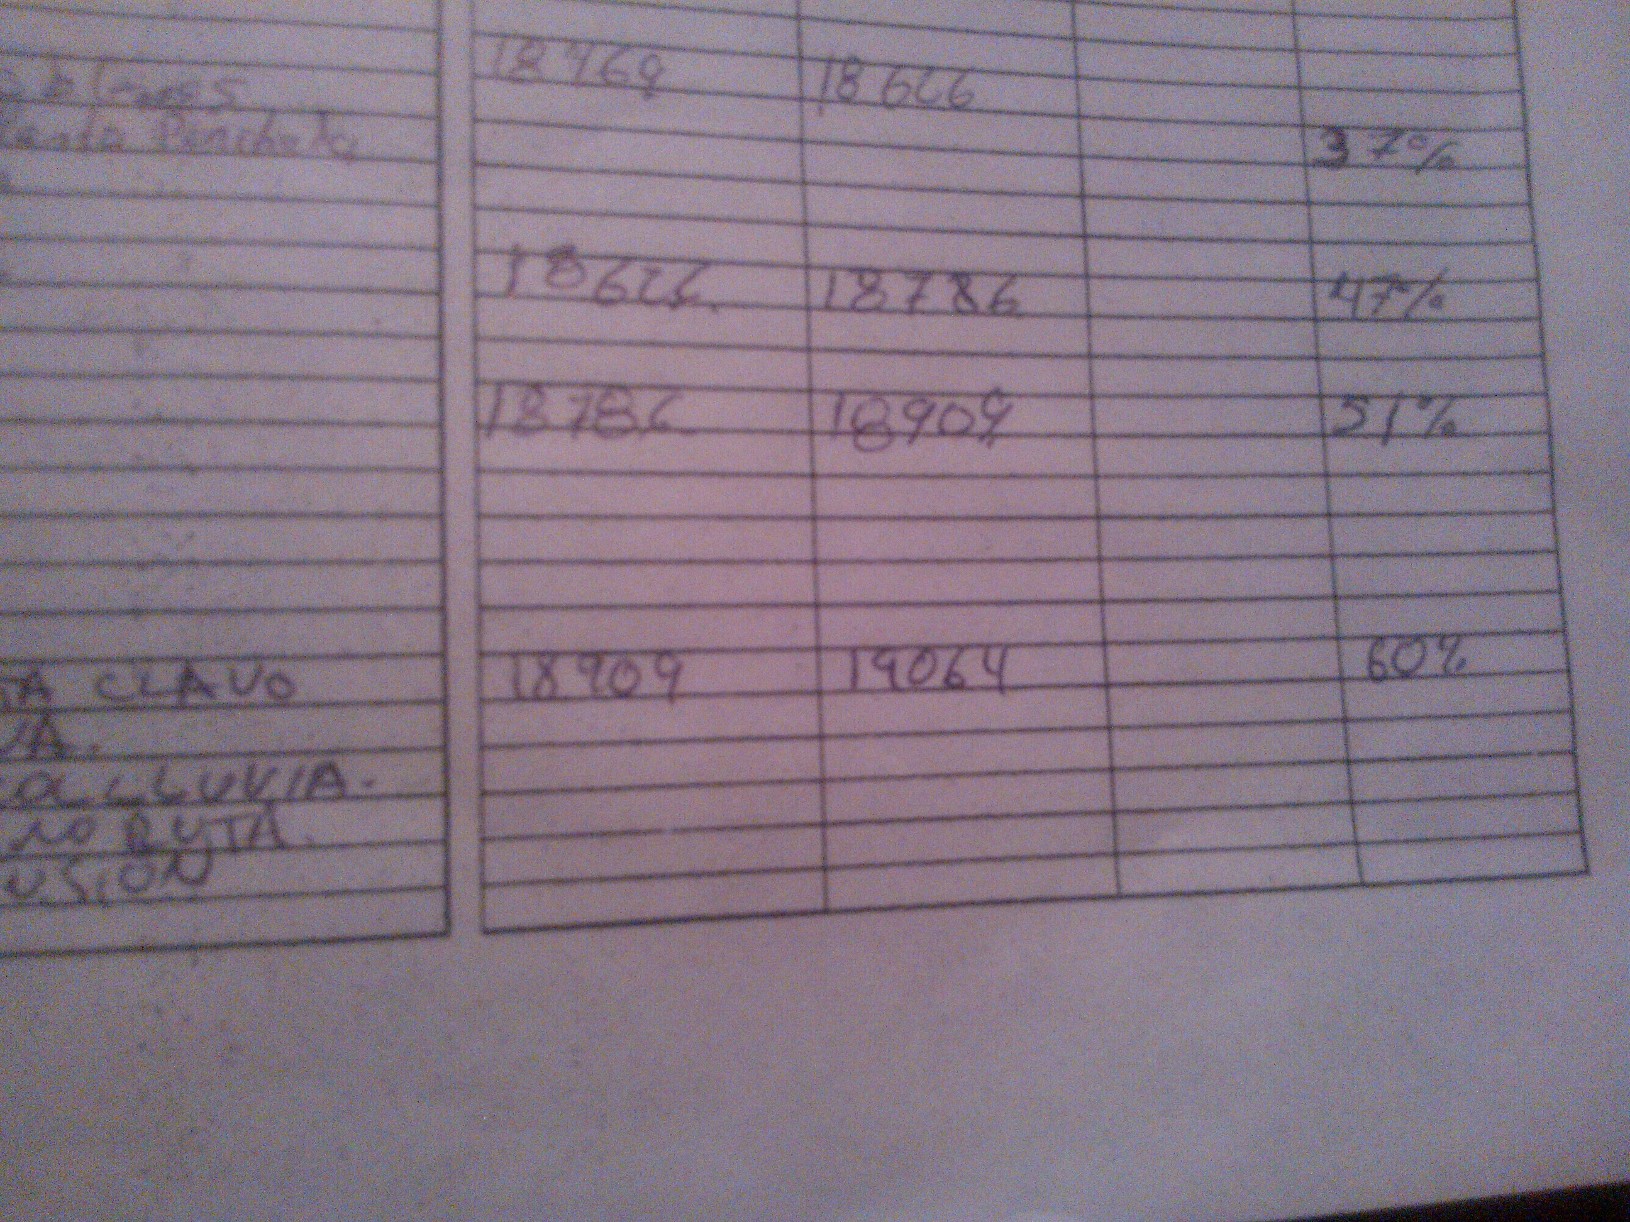 18469 18626
Llanta Ponchada 37%
18626 18786 47%
18786 18909 51%
TA CLAVO 18909 19064 60%
VA.
LLUVIA.
NO RUTA.
USION